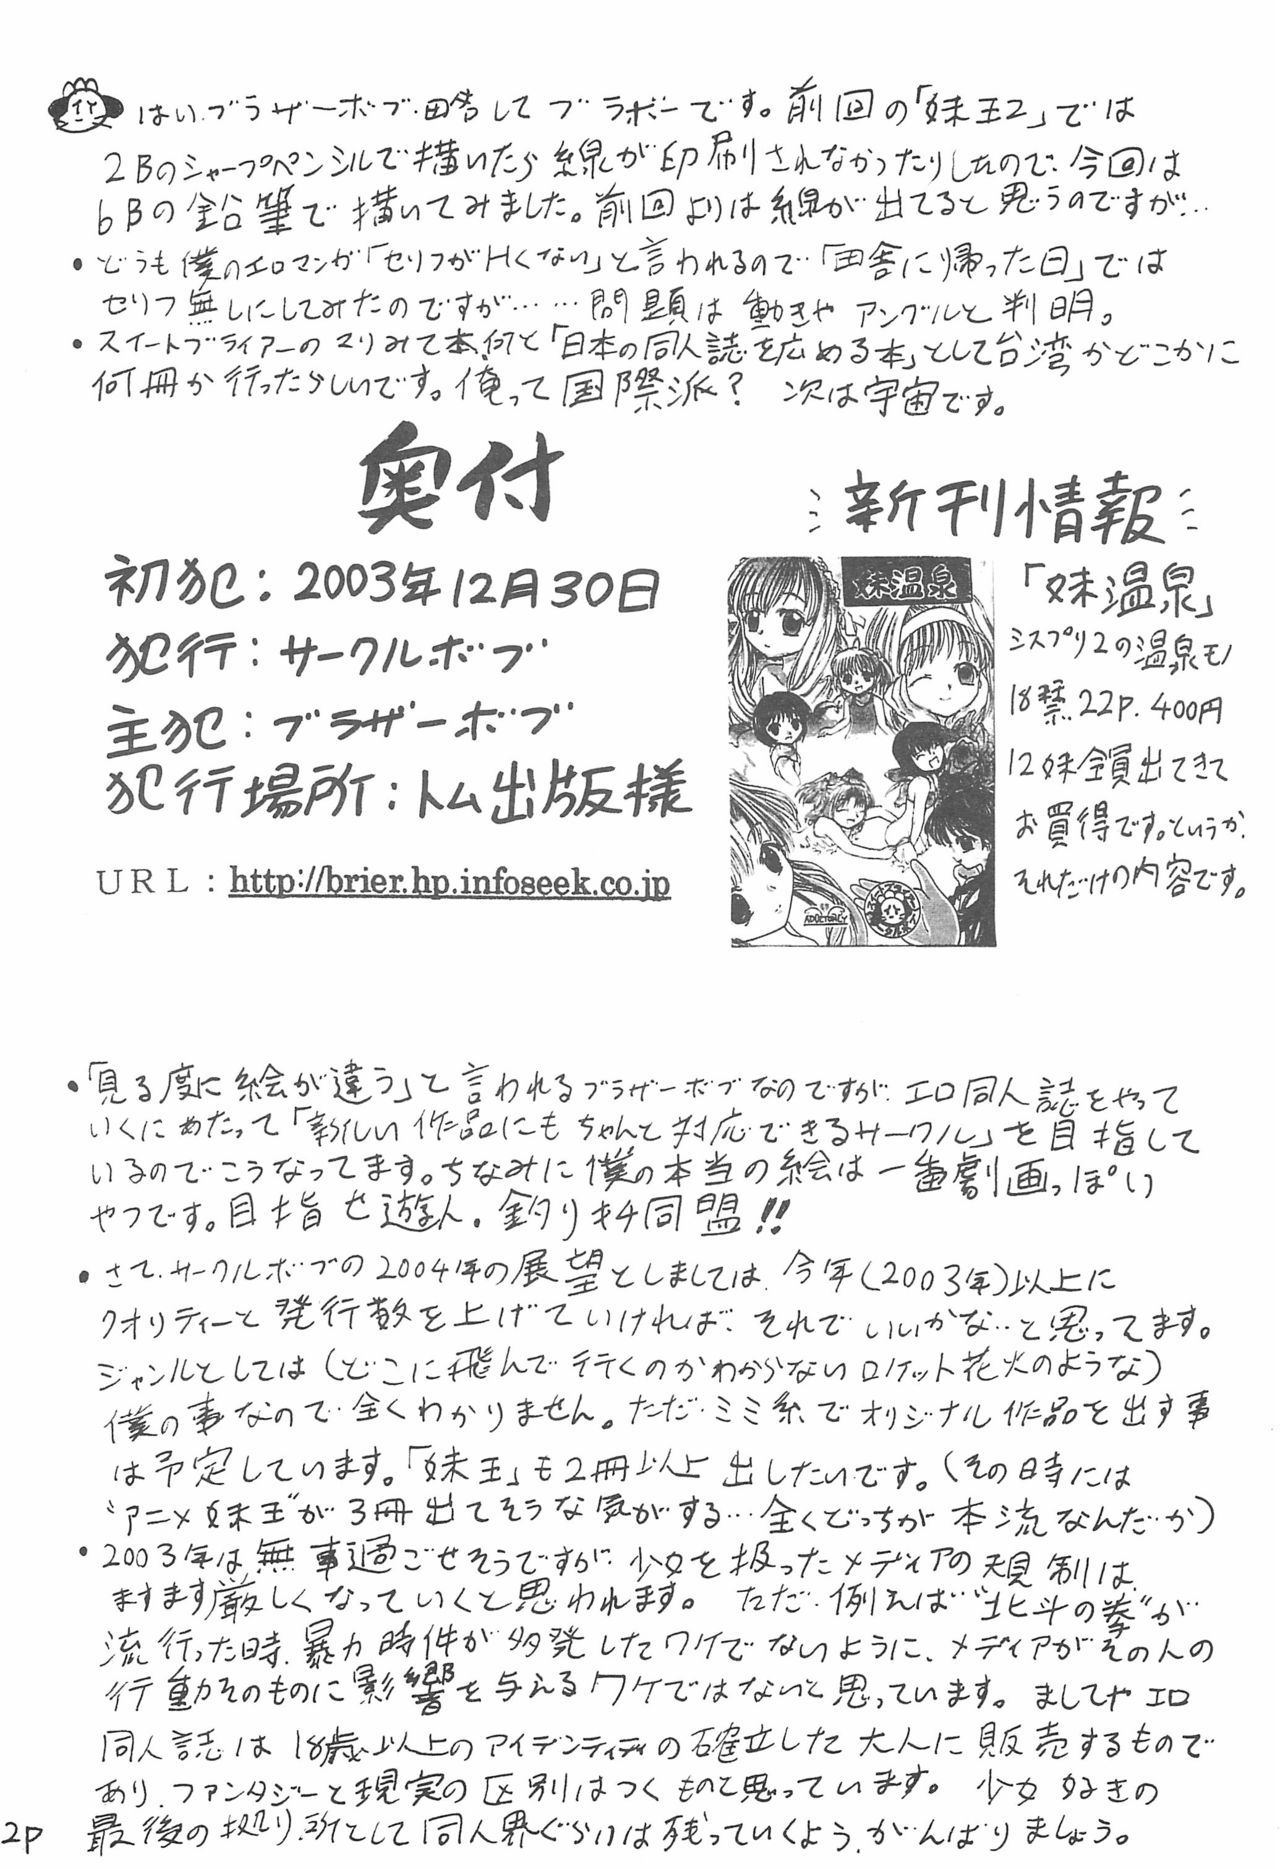 はい、ブラザーボブ、略してブラボーです。前回の「妹王2」では
2Bのシャープペンシルで描いたら線が印刷されなかったりしたので、今回は
6Bの鉛筆で描いてみました。前回よりは線が出てると思うのですが…
・どうも僕のエロマンガ「セリフがHくない」と言われるので「田舎に帰った日」では
セリフ無しにしてみたのですが……問題は動きやアングルと判明。
・スイートブライアーのマリみて本、何と「日本の同人誌を広める本」として台湾かどこかに
何冊か行ったらしいです。俺って国際派? 次は宇宙です。
奥付
初犯:2003年12月30日
犯行:サークルボブ
主犯:ブラザーボブ
犯行場所:トム出版様
URL:http://brier.hp.infoseek.co.jp
新刊情報
妹温泉
「妹温泉」
シスプリ2の温泉モノ
18禁.22P.400円
12妹全員出てきて
お買得です。というか、
それだけの内容です。
・「見る度に絵が違う」と言われるブラザーボブなのですが、エロ同人誌をやって
いくにあたって「新しい作品にもちゃんと対応できるサークル」を目指して
いるのでこうなってます。ちなみに僕の本当の絵は一番劇画っぽい
やつです。目指せ遊人、釣りキチ同盟!!
・さて、サークルボブの2004年の展望としましては、今年(2003年)以上に
クオリティーと発行数を上げていければ、それでいいかな…と思ってます。
ジャンルとしては(どこに飛んで行くのかわからないロケット花火のような)
僕の事なので全くわかりません。ただ、ミミ系でオリジナル作品を出す事
は予定しています。「妹王」も2冊以上出したいです。(その時には
"アニメ妹王"が3冊出てそうな気がする…全くどっちが本流なんだか)
・2003年は無事過ごせそうですが、少女を扱ったメディアの規制は、
ますます厳しくなっていくと思われます。 ただ、例えば"北斗の拳"が
流行った時、暴力時件が多発したワケでないように、メディアがその人の
行動そのものに影響を与えるワケではないと思っています。ましてやエロ
同人誌は18歳以上のアイデンティティの確立した大人に販売するもので
あり、ファンタジーと現実の区別はつくものと思っています。 少女好きの
最後の拠り所として同人界ぐらいは残っていくよう、がんばりましょう。
2P